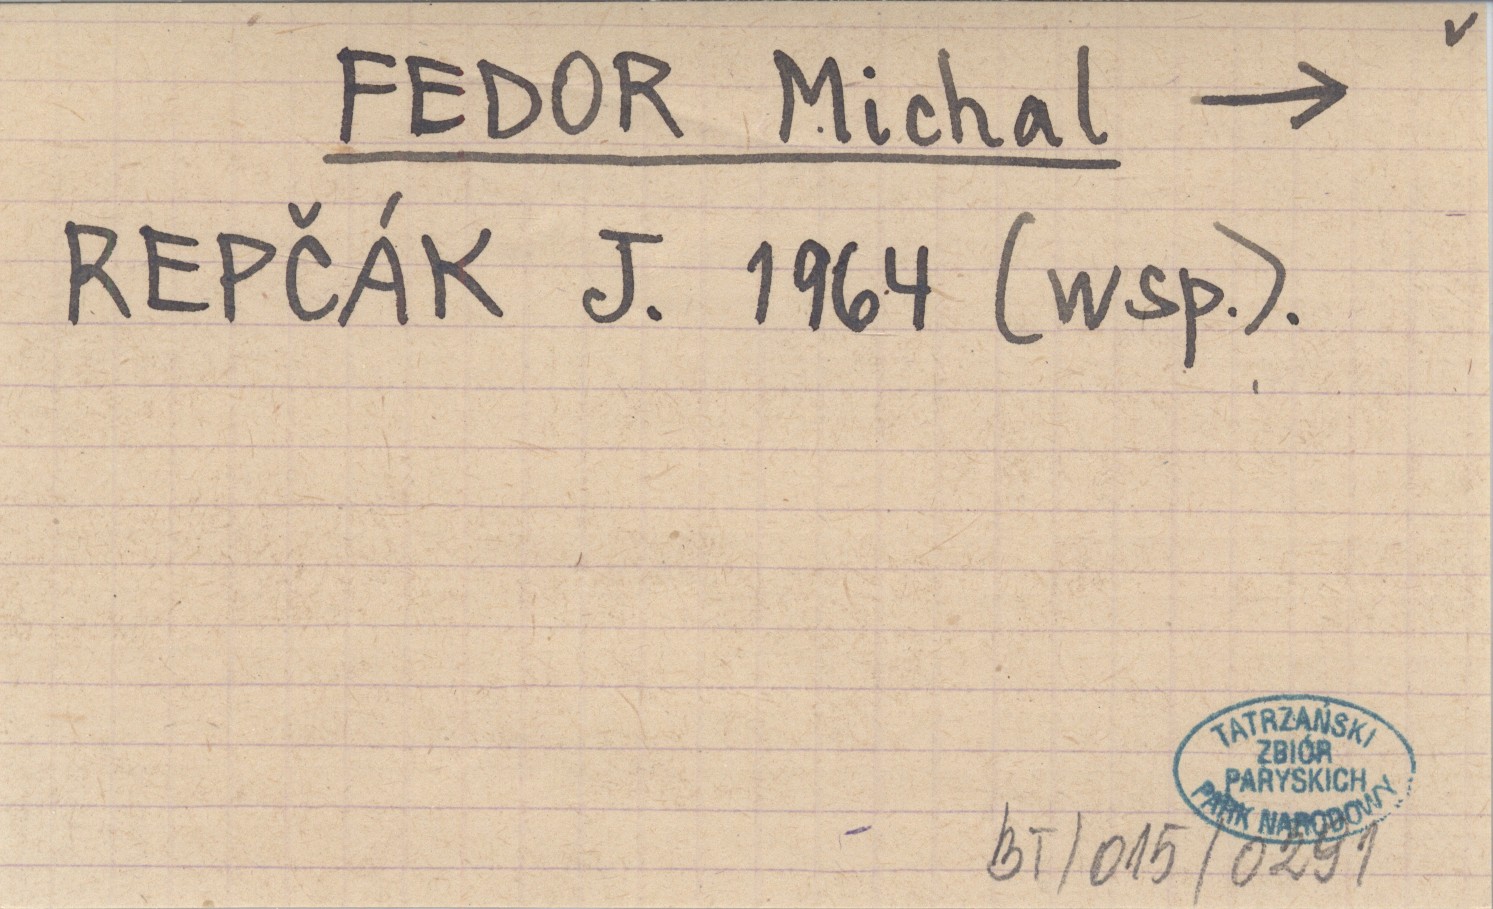 v
FEDOR Michal →
REPČÁK J. 1964 (wsp.).
TATRZAŃSKI
ZBIÓR
PARYSKICH
PARK NARODOWY
BT/015/0291